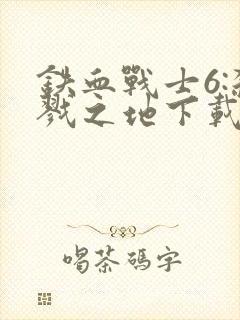 鐵血戰士6:殺
戮之地下載
喝茶碼字